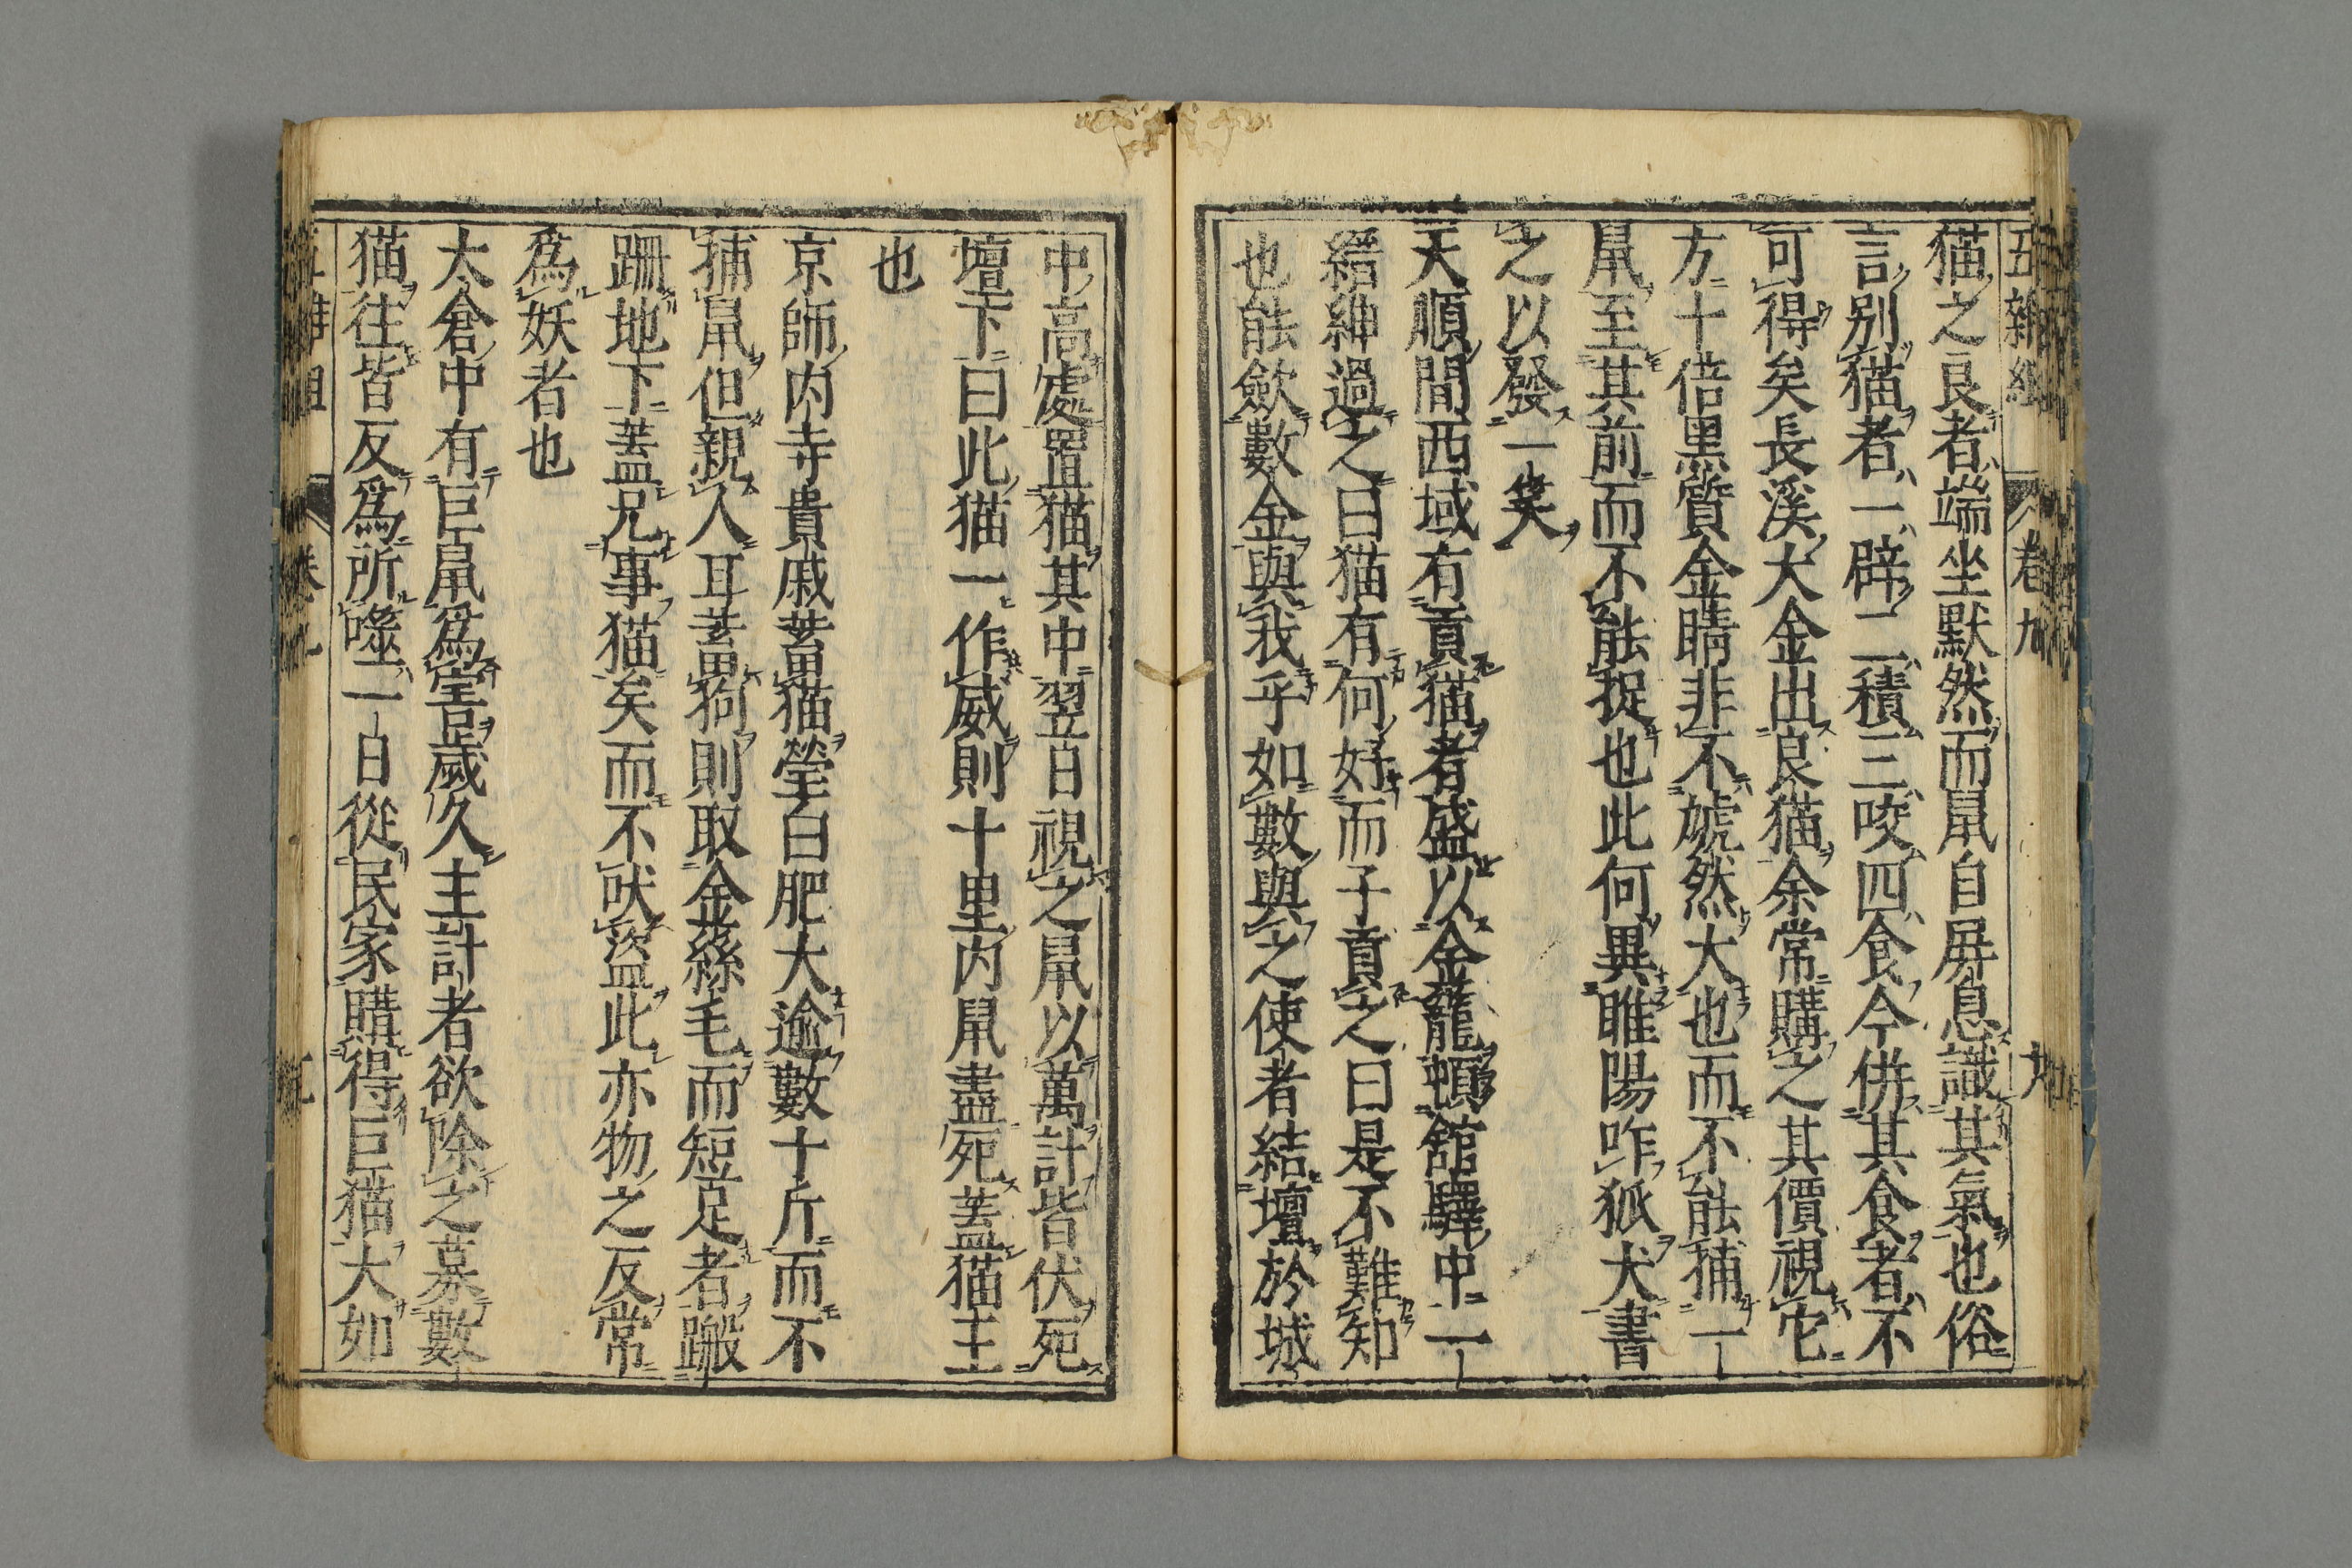 五雜組 卷九 九
猫之良者端坐默然而鼠自屏息識其氣也俗
言別猫者一辟二積三咬四食今併其食者不
可得矣長溪大金出良猫余常購之其價視它
方十倍黑質金睛非不虓然大也而不能捕一
鼠至其前而不能捉也此何異睢陽咋狐犬書
之以發一笑
天順間西域有貢猫者盛以金蘢頓舘驛中一
縉紳過之曰猫有何好而子貢之曰是不難知
也能歛數金與我乎如數與之使者結壇於城
中高處置猫其中翌日視之鼠以萬計皆伏死
壇下曰此猫一作威則十里内鼠盡死葢猫王
也
京師内寺貴戚蓄猫瑩白肥大逾數十斤而不
捕鼠但親人耳蓄狗則取金絲毛而短足者蹣
跚地下葢兄事猫矣而不吠盜此亦物之反常
爲妖者也
太倉中有巨鼠爲害歲久主計者欲除之募數
猫往皆反爲所噬一日從民家購得巨猫大如